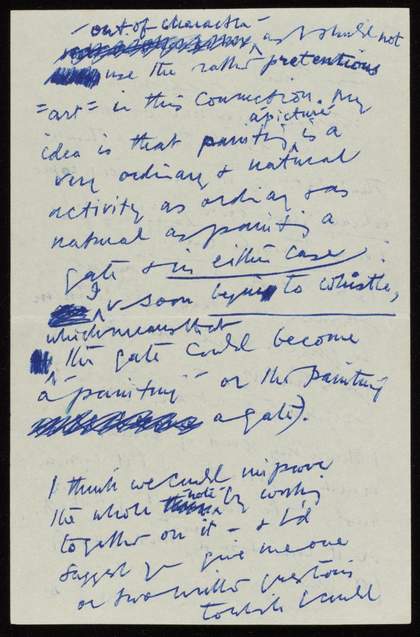 - out of character -
as I should not
use the rather pretentious
"art" in this connection. My
idea is that painting a picture is a
very ordinary & natural
activity as ordinary & as
natural as painting a
gate & in either case
I soon begin to whistle,
which means that
the gate could become
a "painting" or the painting
a gate).
I think we could improve
the whole note by working
together on it - & I'd
suggest you give me one
or two written questions
to which I could